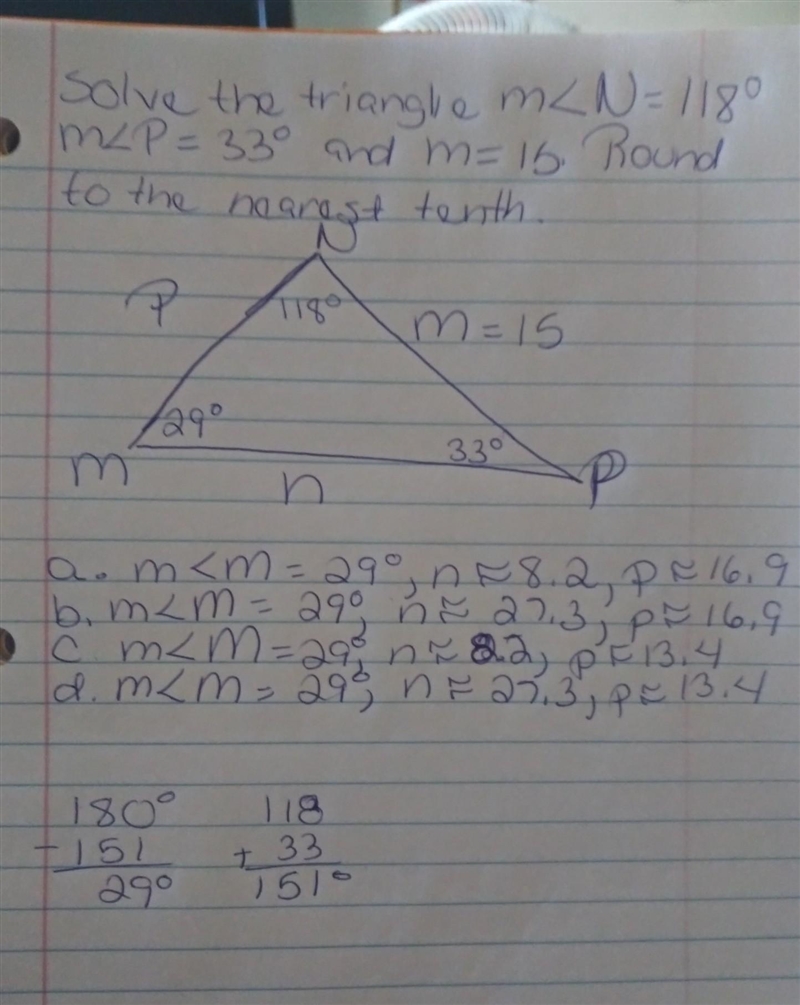 Solve the triangle m<N=118°
m<P=33° and m=15. Round
to the nearest tenth.
N
P
118°
m=15
29°
33°
M
n
P
a. m<m=29°, n≈8.2, p≈16.9
b. m<m=29°, n≈27.3, p≈16.9
c. m<M=29°, n≈8.2, p≈13.4
d. m<m=29°, n≈27.3, p≈13.4
180° 118
-151 + 33
29° 151°